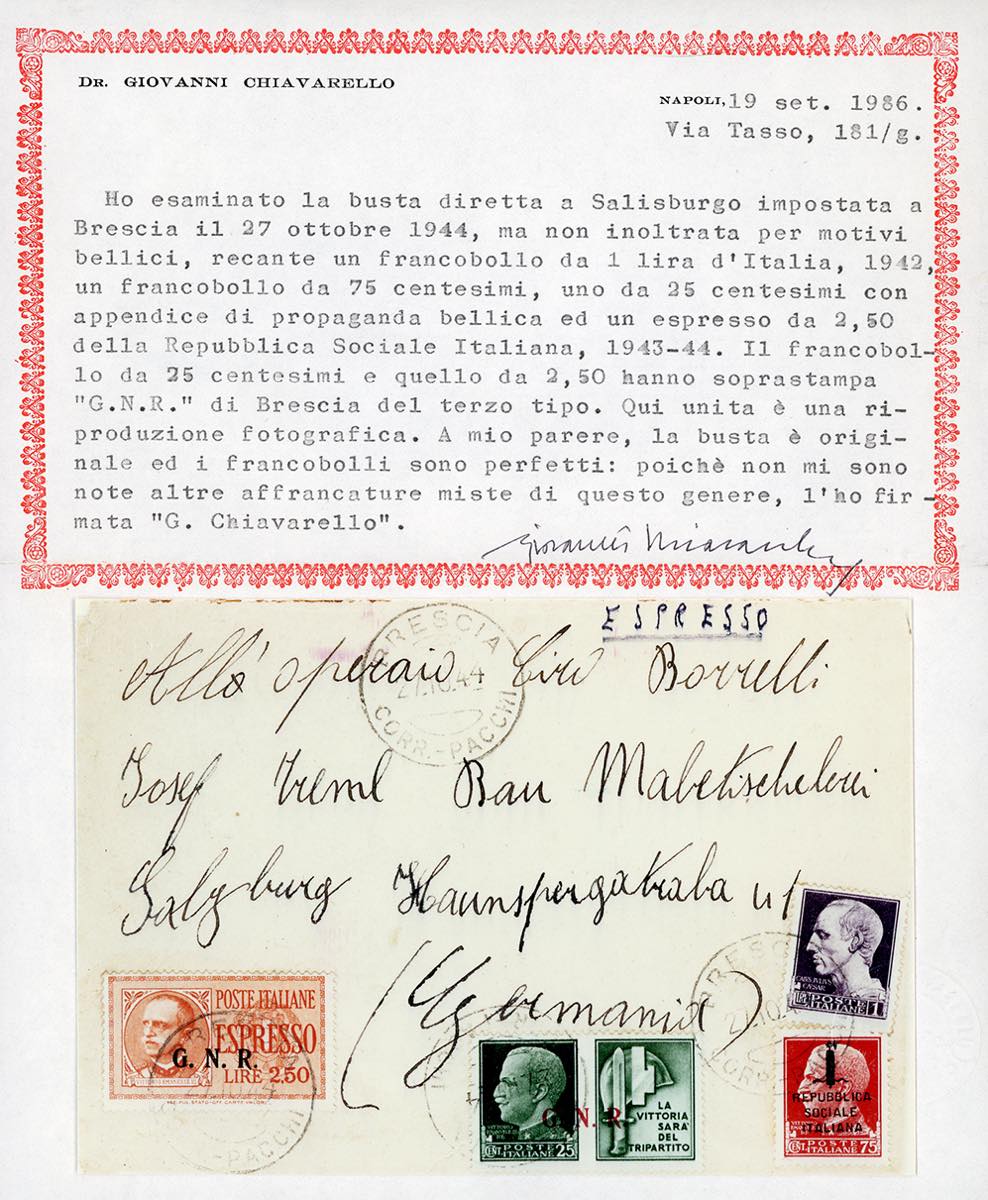 DR. GIOVANNI CHIAVARELLO
NAPOLI, 19 set. 1986.
Via Tasso, 181/g.
Ho esaminato la busta diretta a Salisburgo impostata a
Brescia il 27 ottobre 1944, ma non inoltrata per motivi
bellici, recante un francobollo da 1 lira d'Italia, 1942,
un francobollo da 75 centesimi, uno da 25 centesimi con
appendice di propaganda bellica ed un espresso da 2,50
della Repubblica Sociale Italiana, 1943-44. Il francobol-
lo da 25 centesimi e quello da 2,50 hanno soprastampa
"G.N.R." di Brescia del terzo tipo. Qui unita è una ri-
produzione fotografica. A mio parere, la busta è origi-
nale ed i francobolli sono perfetti: poichè non mi sono
note altre affrancature miste di questo genere, l'ho fir-
mata "G. Chiavarello".
ESPRESSO
BRESCIA
27.10.44
CORR.-PACCHI
All'operaio Ciro Borrelli
Josef Treml Bau
Salzburg
(Germania)
CAIVS IVLIVS
CAESAR
POSTE
ITALIANE
L. 1
BRESCIA
POSTE ITALIANE
ESPRESSO
G. N. R.
LIRE 2,50
VITTORIO EMANUELE III
IST. POL. STATO-OFF. CARTE VALORI
-PACCHI
G. N. R.
CENT. POSTE ITALIANE 25
LA
VITTORIA
SARÀ
DEL
TRIPARTITO
REPUBBLICA
SOCIALE
ITALIANA
CENT. POSTE ITALIANE 75